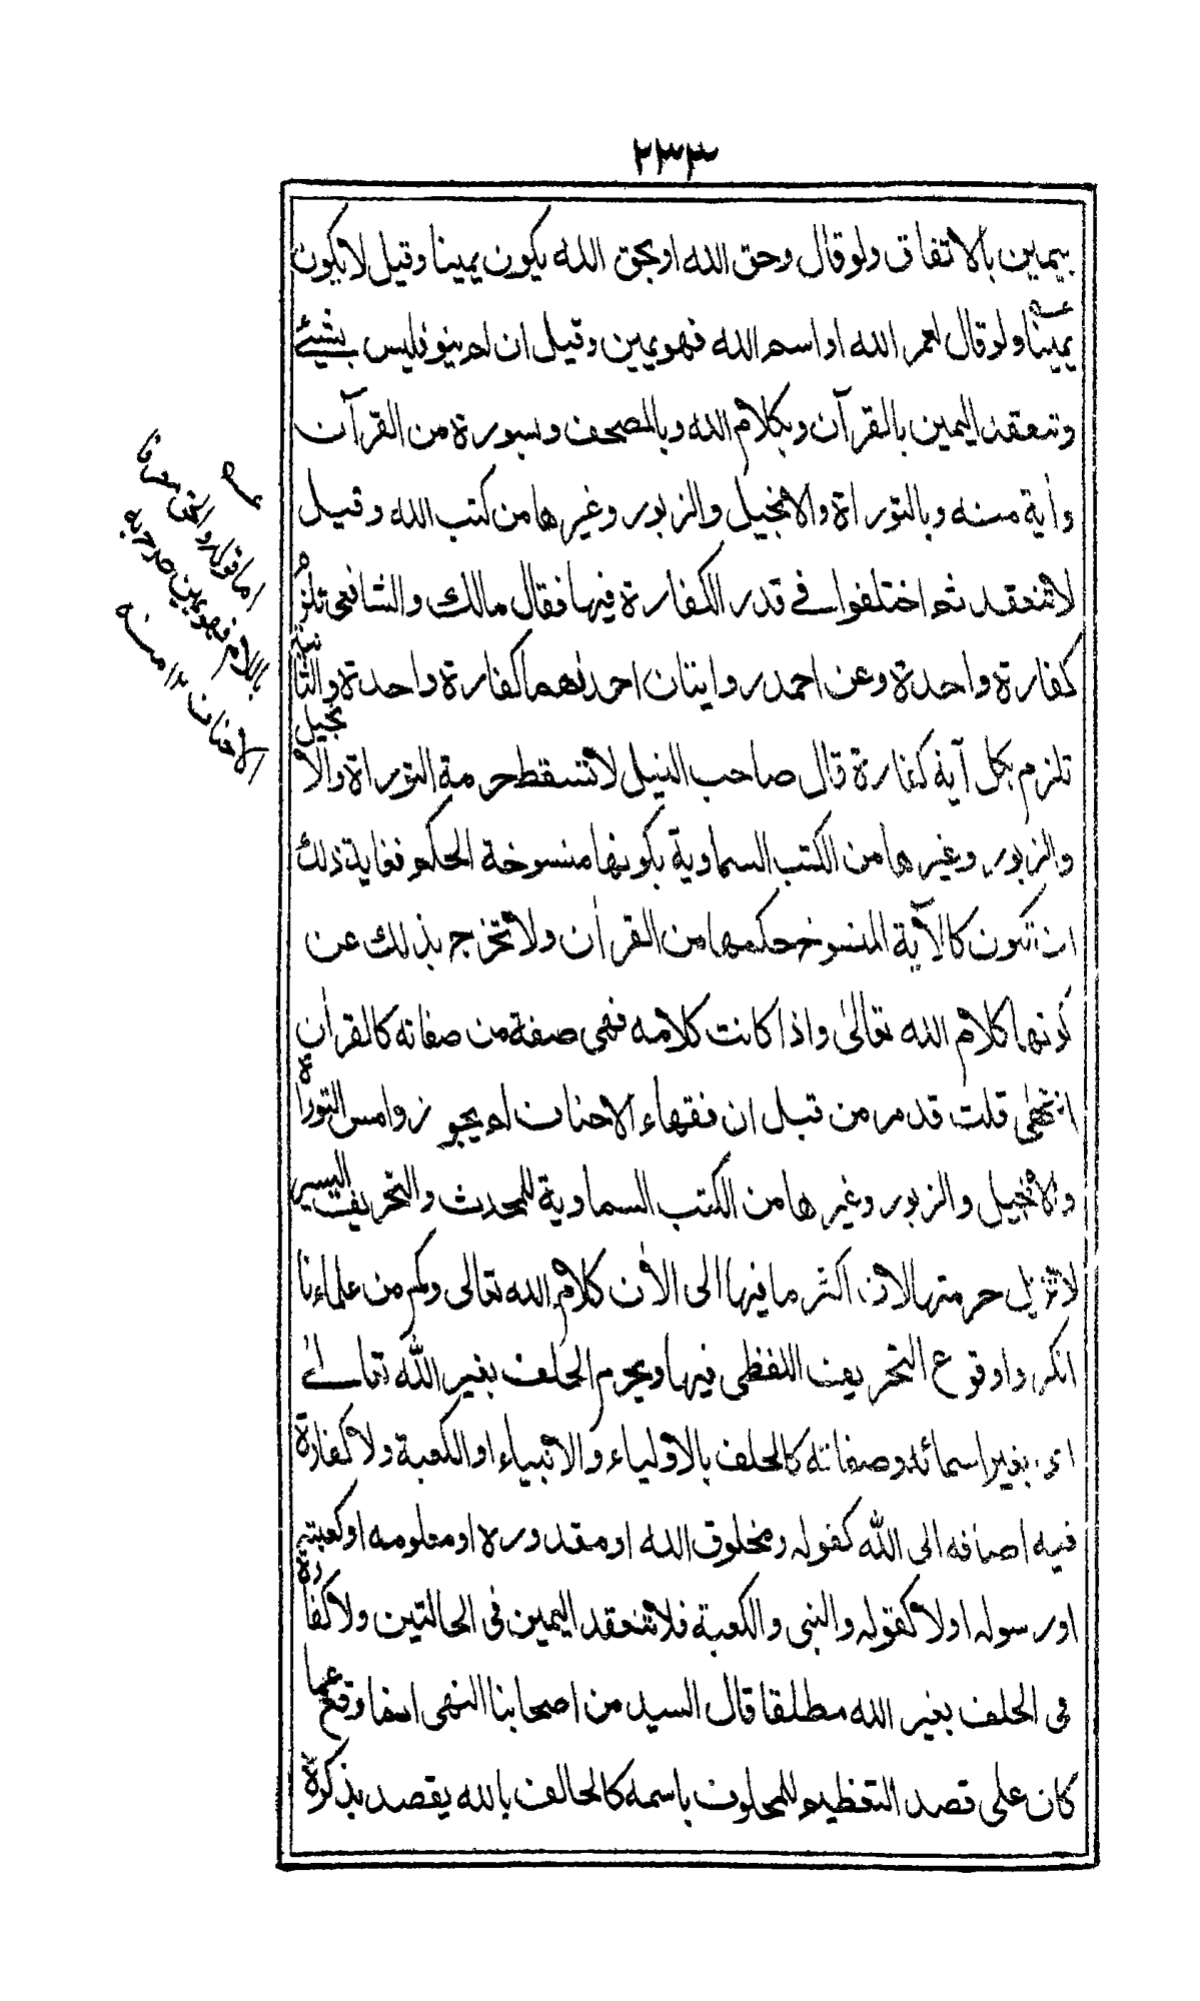 ٢٣٣
بيمين بالاتفاق ولو قال وحق الله او بحق الله يكون يمينا وقيل لا يكون
يمينا ولو قال لعمر الله او اسم الله فهو يمين وقيل ان لم ينو فليس بشيئ
وتنعقد اليمين بالقرآن وبكلام الله وبالمصحف وبسورة من القرآن
واٰية منه وبالتوراة والانجيل والزبور وغيرها من كتب الله وقيل
لا تنعقد ثم اختلفوا في قدر الكفارة فيها فقال مالك والشافعى تلزم
كفارة واحدة وعن احمد روايتان احدٰهما كفارة واحدة والثانية
تلزم بكل آية كفارة قال صاحب النيل لا تسقط حرمة التوراة والانجيل
والزبور وغيرها من الكتب السماوية بكونها منسوخة الحكم فغاية ذلك
ان تكون كالآية المنسوخ حكمها من القراٰن ولا تخرج بذلك عن
كونها كلام الله تعالىٰ واذا كانت كلامه فهى صفة من صفاته كالقراٰن
انتهىٰ قلت قد مر من قبل ان فقهاء الاحناف لم يجوزوا مس التوراة
والانجيل والزبور وغيرها من الكتب السماوية للمحدث والتحريف اليسير
لا تزيل حرمتها لان اكثر ما فيها الى الاٰن كلام الله تعالى وكم من علماءنا
انكروا وقوع التحريف اللفظى فيها ويحرم الحلف بغير الله تعالىٰ
اى بغير اسمائه وصفاته كالحلف بالاولياء والانبياء او الكعبة ولا كفارة
فيه اضافه الى الله كقوله ومخلوق الله او مقدوره او معلومه او كعبته
او رسوله اولا كقوله والنبى والكعبة فلا تنعقد اليمين فى الحالتين ولا كفارة
فى الحلف بغير الله مطلقا قال السيد من اصحابنا النهى انما وقع عما
كان على قصد التعظيم للمحلوف باسمه كالحالف بالله يقصد بذكره
عـه
اما قوله والحق معرفا
باللام فهو يمين صرح به
الاحناف ١٢ منه